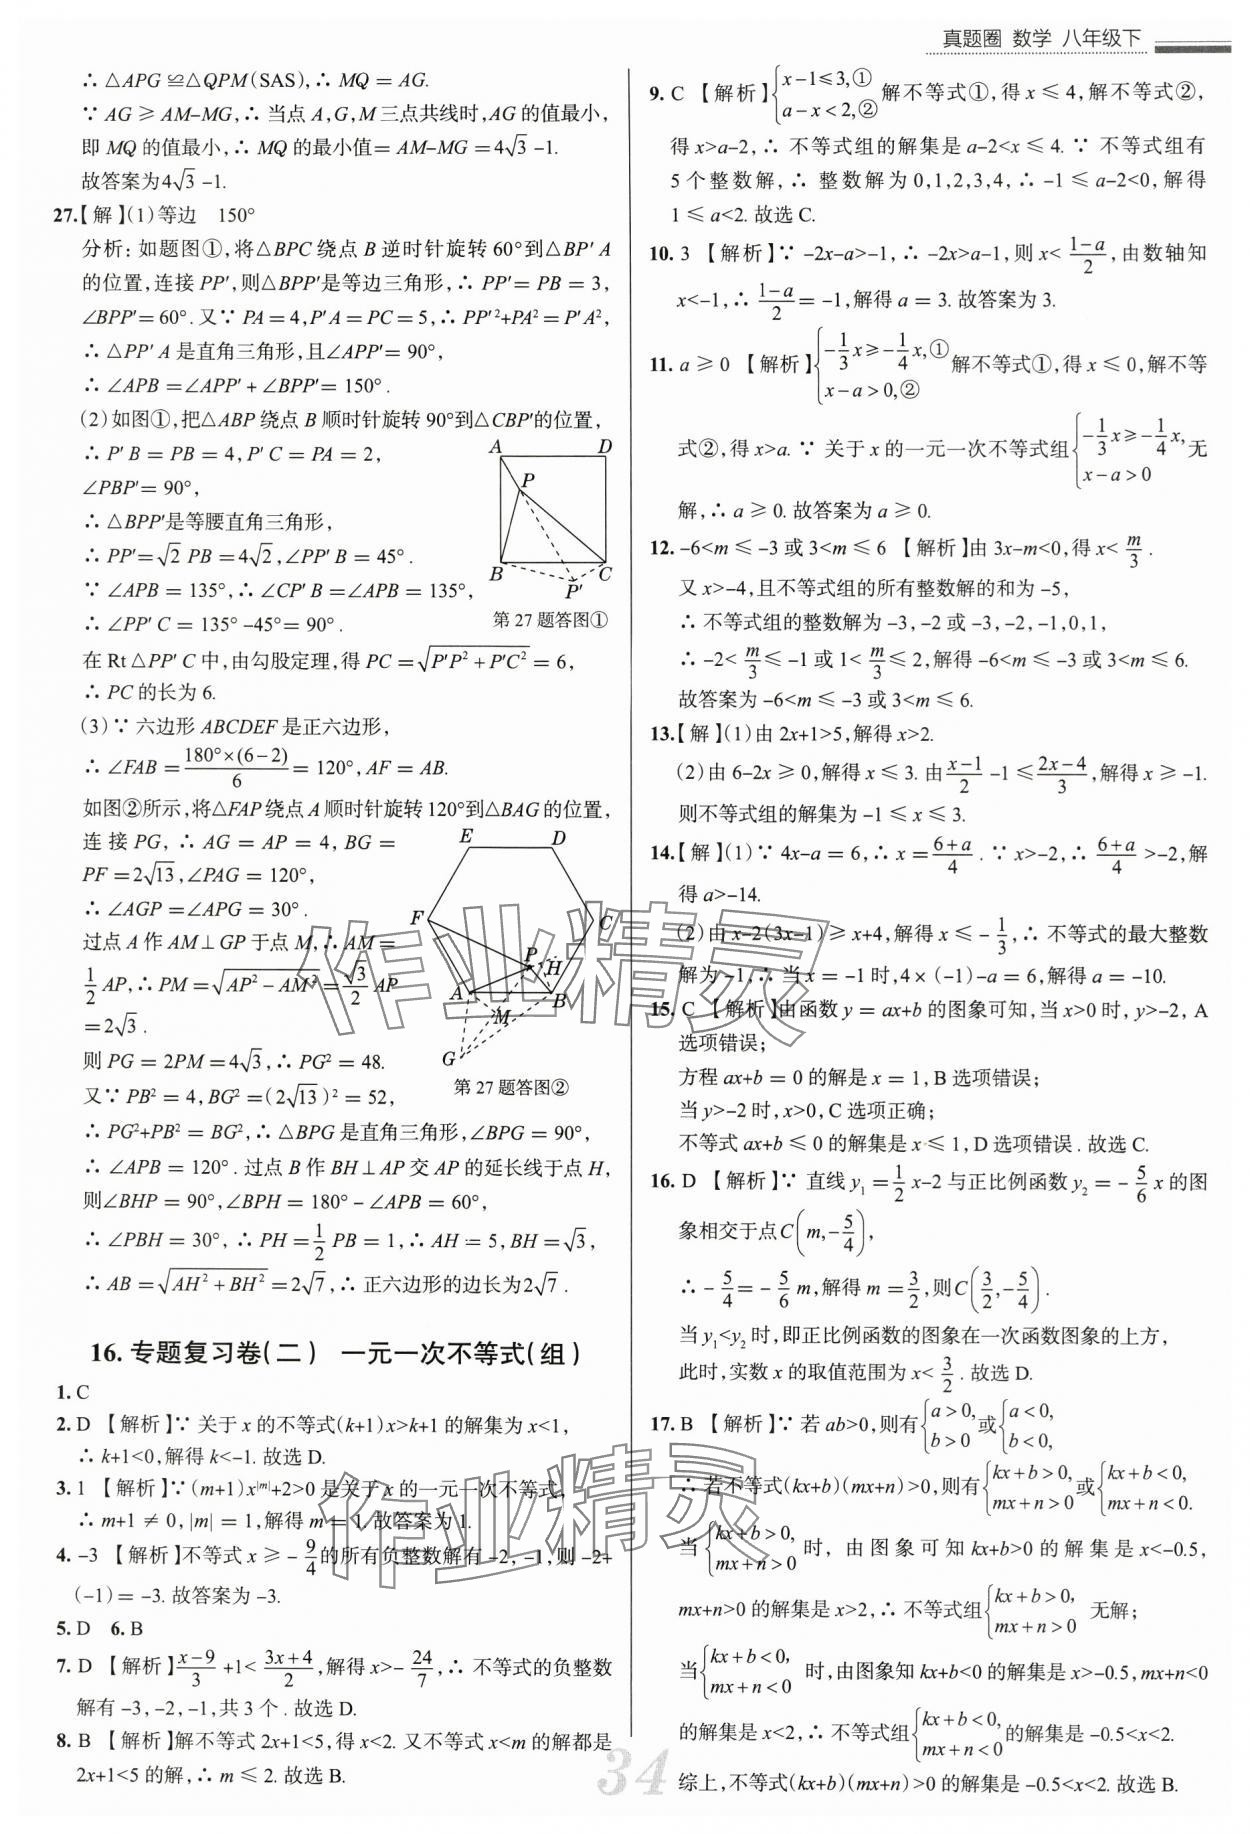 真题圈 数学 八年级下
∴ △APG ≌△QPM(SAS),∴ MQ = AG.
∵ AG ≥ AM–MG,∴ 当点 A,G,M 三点共线时,AG 的值最小,
即 MQ 的值最小,∴ MQ 的最小值= AM–MG =4√3 -1.
故答案为4√3 -1.
27.【解】(1)等边 150°
分析:如题图①,将△BPC 绕点 B 逆时针旋转 60°到△BP′ A
的位置,连接 PP′,则△BPP′是等边三角形,∴ PP′= PB = 3,
∠BPP′= 60°. 又∵ PA = 4,P′ A = PC = 5,∴ PP′²+PA² = P′ A²,
∴ △PP′ A 是直角三角形,且∠APP′= 90°,
∴ ∠APB = ∠APP′ + ∠BPP′= 150°.
(2)如图①,把△ABP 绕点 B 顺时针旋转 90°到△CBP′的位置,
∴ P′ B = PB = 4,P′ C = PA = 2,
∠PBP′= 90°,
∴ △BPP′是等腰直角三角形,
∴ PP′=√2 PB = 4√2,∠PP′ B = 45°.
∵ ∠APB = 135°,∴ ∠CP′ B =∠APB = 135°,
∴ ∠PP′ C = 135° -45°= 90°.
A D P B C P′
第 27 题答图①
在 Rt △PP′ C 中,由勾股定理,得 PC =√(P′P² + P′C²) = 6,
∴ PC 的长为 6.
(3)∵ 六边形 ABCDEF 是正六边形,
∴ ∠FAB = 180°×(6-2)/6 = 120°,AF = AB.
如图②所示,将△FAP 绕点 A 顺时针旋转120°到△BAG 的位置,
连接 PG, ∴ AG = AP = 4, BG =
PF = 2√13,∠PAG = 120°,
∴ ∠AGP =∠APG = 30°.
过点 A 作 AM⊥GP 于点 M,∴ AM =
1/2 AP,∴ PM =√(AP² - AM²) = √3/2 AP
= 2√3.
则 PG = 2PM = 4√3,∴ PG² = 48.
E D F C P H A B M G
第 27 题答图②
又∵ PB² = 4, BG² =(2√13)² = 52,
∴ PG²+PB² = BG²,∴ △BPG 是直角三角形,∠BPG = 90°,
∴ ∠APB = 120°. 过点 B 作 BH⊥AP 交 AP 的延长线于点 H,
则∠BHP = 90°,∠BPH = 180° – ∠APB = 60°,
∴ ∠PBH = 30°, ∴ PH = 1/2 PB = 1,∴ AH = 5, BH =√3,
∴ AB =√(AH² + BH²) = 2√7,∴ 正六边形的边长为2√7.
16. 专题复习卷(二) 一元一次不等式(组)
1. C
2. D 【解析】∵ 关于 x 的不等式(k+1)x>k+1 的解集为 x<1,
∴ k+1<0,解得 k<-1. 故选 D.
3. 1 【解析】∵(m+1)x|m|+2>0 是关于 x 的一元一次不等式,
∴ m+1 ≠ 0, |m| = 1,解得 m = 1. 故答案为 1.
4. -3 【解析】不等式 x ≥ -9/4 的所有负整数解有 -2, -1,则 -2+
(-1)= -3. 故答案为 -3.
5. D 6. B
7. D 【解析】(x-9)/3 +1< (3x+4)/2,解得 x>-24/7,∴ 不等式的负整数
解有 -3, -2, -1,共 3 个. 故选 D.
8. B 【解析】解不等式 2x+1<5,得 x<2. 又不等式 x<m 的解都是
2x+1<5 的解,∴ m ≤ 2. 故选 B.
9. C 【解析】{x-1≤3,① a-x<2,② 解不等式①,得 x ≤ 4,解不等式②,
得 x>a-2, ∴ 不等式组的解集是 a-2<x ≤ 4. ∵ 不等式组有
5 个整数解,∴ 整数解为 0,1,2,3,4,∴ -1 ≤ a-2<0,解得
1 ≤ a<2. 故选 C.
10. 3 【解析】∵ -2x-a>-1,∴ -2x>a-1,则 x< (1-a)/2,由数轴知
x<-1,∴ (1-a)/2 = -1,解得 a = 3. 故答案为 3.
11. a ≥ 0 【解析】{-1/3 x≥-1/4 x,① x-a>0,② 解不等式①,得 x ≤ 0,解不等
式②,得 x>a. ∵ 关于 x 的一元一次不等式组{-1/3 x≥-1/4 x, x-a>0 无
解,∴ a ≥ 0. 故答案为 a ≥ 0.
12. -6<m ≤ -3 或 3<m ≤ 6 【解析】由 3x-m<0,得 x< m/3.
又 x>-4,且不等式组的所有整数解的和为 -5,
∴ 不等式组的整数解为 -3, -2 或 -3, -2, -1,0,1,
∴ -2< m/3 ≤ -1 或 1< m/3 ≤ 2,解得 -6<m ≤ -3 或 3<m ≤ 6.
故答案为 -6<m ≤ -3 或 3<m ≤ 6.
13.【解】(1)由 2x+1>5,解得 x>2.
(2)由 6-2x ≥ 0,解得 x ≤ 3. 由(x-1)/2 -1 ≤(2x-4)/3,解得 x ≥ -1.
则不等式组的解集为 -1 ≤ x ≤ 3.
14.【解】(1)∵ 4x-a = 6,∴ x =(6+a)/4. ∵ x>-2,∴ (6+a)/4 >-2,解
得 a>-14.
(2)由 x-2(3x-1)≥ x+4,解得 x ≤ -1/3,∴ 不等式的最大整数
解为 -1,∴ 当 x = -1 时,4×(-1)-a = 6,解得 a = -10.
15. C 【解析】由函数 y = ax+b 的图象可知,当 x>0 时, y>-2, A
选项错误;
方程 ax+b = 0 的解是 x = 1, B 选项错误;
当 y>-2 时,x>0, C 选项正确;
不等式 ax+b ≤ 0 的解集是 x ≤ 1, D 选项错误. 故选 C.
16. D 【解析】∵ 直线 y₁ =1/2 x-2 与正比例函数 y₂ = -5/6 x 的图
象相交于点 C(m,-5/4),
∴ -5/4 = -5/6 m,解得 m = 3/2,则 C(3/2,-5/4).
当 y₁<y₂ 时,即正比例函数的图象在一次函数图象的上方,
此时,实数 x 的取值范围为 x< 3/2. 故选 D.
17. B 【解析】∵ 若 ab>0,则有{a>0, b>0 或{a<0, b<0,
∴ 若不等式(kx+b)(mx+n)>0,则有{kx+b>0, mx+n>0 或{kx+b<0, mx+n<0.
当{kx+b>0, mx+n>0 时, 由图象可知 kx+b>0 的解集是 x<-0.5,
mx+n>0 的解集是 x>2,∴ 不等式组{kx+b>0, mx+n>0 无解;
当{kx+b<0, mx+n<0 时,由图象知 kx+b<0 的解集是 x>-0.5,mx+n<0
的解集是 x<2,∴ 不等式组{kx+b<0, mx+n<0 的解集是 -0.5<x<2.
综上,不等式(kx+b)(mx+n)>0 的解集是 -0.5<x<2. 故选 B.
34
作业精灵
作业精灵